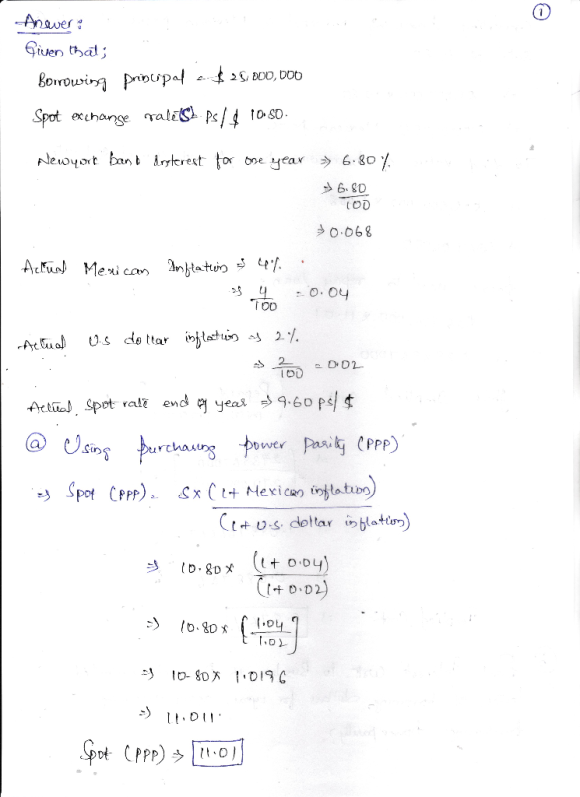 1
Answer:
Given that;
Borrowing principal = $ 25,000,000
Spot exchange rate(S) Ps/$ 10.80.
Newyork bank interest for one year ⇒ 6.80%
⇒ 6.80
100
⇒ 0.068
Actual Mexican Inflation ⇒ 4%.
⇒ 4/100 = 0.04
Actual U.S dollar inflation ⇒ 2%.
⇒ 2/100 = 0.02
Actual, Spot rate end of year ⇒ 9.60 ps/$
(a) Using purchasing power Parity (PPP)
⇒ Spot (PPP) = S× (1+ Mexican inflation)
(1+ U.S. dollar inflation)
⇒ 10.80 × (1+0.04)
(1+0.02)
⇒ 10.80 × [1.04/1.02]
⇒ 10.80 × 1.0196
⇒ 11.011.
Spot (PPP) ⇒ 11.01